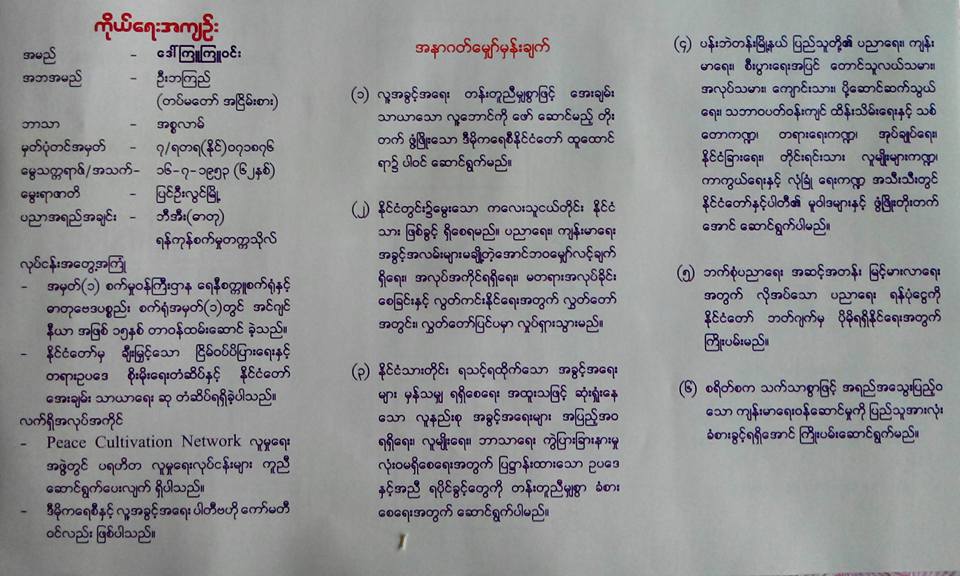 ကိုယ်ရေးအကျဉ်း
အမည် - ဒေါ်ကြူကြူဝင်း
အဘအမည် - ဦးဘကြည်
(တပ်မတော် အငြိမ်းစား)
ဘာသာ - အစ္စလာမ်
မှတ်ပုံတင်အမှတ် - ၇/ရတရ(နိုင်)၀၇၁၈၇၆
မွေးသက္ကရာဇ်/အသက်- ၁၆-၇-၁၉၅၃ (၆၂နှစ်)
မွေးရာဇာတိ - ပြင်ဦးလွင်မြို့
ပညာအရည်အချင်း - ဘီအီး(ဓာတု)
ရန်ကုန်စက်မှုတက္ကသိုလ်
လုပ်ငန်းအတွေ့အကြုံ
- အမှတ်(၁) စက်မှုဝန်ကြီးဌာန ရေနီစက္ကူစက်ရုံနှင့်
ဓာတုဗေဒပစ္စည်း စက်ရုံအမှတ်(၁)တွင် အင်ဂျင်
နီယာ အဖြစ် ၁၅နှစ် တာဝန်ထမ်းဆောင် ခဲ့သည်။
- နိုင်ငံတော်မှ ချီးမြှင့်သော ငြိမ်ဝပ်ပိပြားရေးနှင့်
တရားဥပဒေ စိုးမိုးရေးတံဆိပ်နှင့် နိုင်ငံတော်
အေးချမ်း သာယာရေး ဆု တံဆိပ်ရရှိခဲ့ပါသည်။
လက်ရှိအလုပ်အကိုင်
- Peace Cultivation Network လူမှုရေး
အဖွဲ့တွင် ပရဟိတ လူမှုရေးလုပ်ငန်းများ ကူညီ
ဆောင်ရွက်ပေးလျက် ရှိပါသည်။
- ဒီမိုကရေစီနှင့် လူ့အခွင့်အရေး ပါတီဗဟို ကော်မတီ
ဝင်လည်း ဖြစ်ပါသည်။
အနာဂတ်မျှော်မှန်းချက်
(၁) လူ့အခွင့်အရေး တန်းတူညီမျှစွာဖြင့် အေးချမ်း
သာယာသော လူ့ဘောင်ကို ဖော် ဆောင်မည့် တိုး
တက် ဖွံ့ဖြိုးသော ဒီမိုကရေစီနိုင်ငံတော် ထူထောင်
ရာ၌ ပါဝင် ဆောင်ရွက်မည်။
(၂) နိုင်ငံတွင်း၌မွေးသော ကလေးသူငယ်တိုင်း နိုင်ငံ
သား ဖြစ်ခွင့် ရှိစေရမည်။ ပညာရေး၊ ကျန်းမာရေး
အခွင့်အလမ်းများမချို့တဲ့အောင်ဘဝမျှော်လင့်ချက်
ရှိရေး၊ အလုပ်အကိုင်ရရှိရေး၊ မတရားအလုပ်ခိုင်း
စေခြင်းနှင့် လွတ်ကင်းနိုင်ရေးအတွက် လွှတ်တော်
အတွင်း၊ လွှတ်တော်ပြင်ပမှာ လှုပ်ရှားသွားမည်။
(၃) နိုင်ငံသားတိုင်း ရသင့်ရထိုက်သော အခွင့်အရေး
များ မှန်သမျှ ရရှိစေရေး အထူးသဖြင့် ဆုံးရှုံးနေ
သော လူနည်းစု အခွင့်အရေးများ အပြည့်အဝ
ရရှိရေး၊ လူမျိုးရေး၊ ဘာသာရေး ကွဲပြားခြားနားမှု
လုံးဝမရှိစေရေးအတွက် ပြဋ္ဌာန်းထားသော ဥပဒေ
နှင့်အညီ ရပိုင်ခွင့်တွေကို တန်းတူညီမျှစွာ ခံစား
စေရေးအတွက် ဆောင်ရွက်ပါမည်။
(၄) ပန်းဘဲတန်းမြို့နယ် ပြည်သူတို့၏ ပညာရေး၊ ကျန်း
မာရေး၊ စီးပွားရေးအပြင် တောင်သူလယ်သမား၊
အလုပ်သမား၊ ကျောင်းသား၊ ပို့ဆောင်ဆက်သွယ်
ရေး၊ သဘာဝပတ်ဝန်းကျင် ထိန်းသိမ်းရေးနှင့် သစ်
တောကဏ္ဍ၊ တရားရေးကဏ္ဍ၊ အုပ်ချုပ်ရေး၊
နိုင်ငံခြားရေး၊ တိုင်းရင်းသား လူမျိုးများကဏ္ဍ၊
ကာကွယ်ရေးနှင့် လုံခြုံ ရေးကဏ္ဍ အသီးသီးတွင်
နိုင်ငံတော်နှင့်ပါတီ၏ မူဝါဒများနှင့် ဖွံ့ဖြိုးတိုးတက်
အောင် ဆောင်ရွက်ပါမည်။
(၅) ဘက်စုံပညာရေး အဆင့်အတန်း မြင့်မားလာရေး
အတွက် လိုအပ်သော ပညာရေး ရန်ပုံငွေကို
နိုင်ငံတော် ဘတ်ဂျက်မှ ပိုမိုရရှိနိုင်ရေးအတွက်
ကြိုးပမ်းမည်။
(၆) စရိတ်စက သက်သာစွာဖြင့် အရည်အသွေးပြည့်ဝ
သော ကျန်းမာရေးဝန်ဆောင်မှုကို ပြည်သူအားလုံး
ခံစားခွင့်ရရှိအောင် ကြိုးပမ်းဆောင်ရွက်မည်။